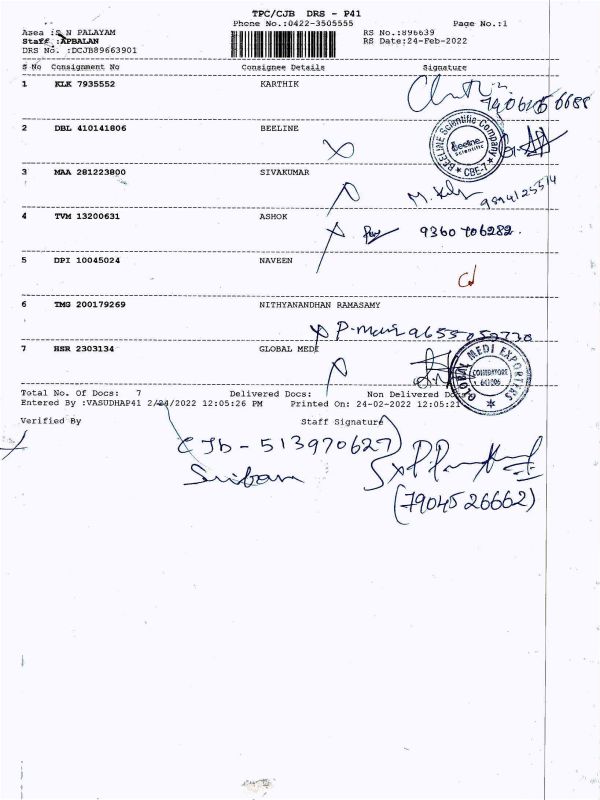 TPC/CJB DRS - P41
Phone No.:0422-3505555 Page No.:1
Asea :S N PALAYAM RS No.:896639
Staff :APBALAN RS Date:24-Feb-2022
DRS No. :DCJB89663901
S No Consignment No Consignee Details Signature
1 KLK 7935552 KARTHIK
2 DBL 410141806 BEELINE
BEELINE Scientific Company
Beeline
Scientific
CBE-7
3 MAA 281223800 SIVAKUMAR
4 TVM 13200631 ASHOK
9360706282.
5 DPI 10045024 NAVEEN
6 TMG 200179269 NITHYANANDHAN RAMASAMY
7 HSR 2303134 GLOBAL MEDI
GLOBAL MEDI EXPORTERS
COIMBATORE
Total No. Of Docs: 7 Delivered Docs: Non Delivered Docs
Entered By :VASUDHAP41 2/24/2022 12:05:26 PM Printed On: 24-02-2022 12:05:21
Verified By Staff Signature
CJb - 513970627
(7904526662)